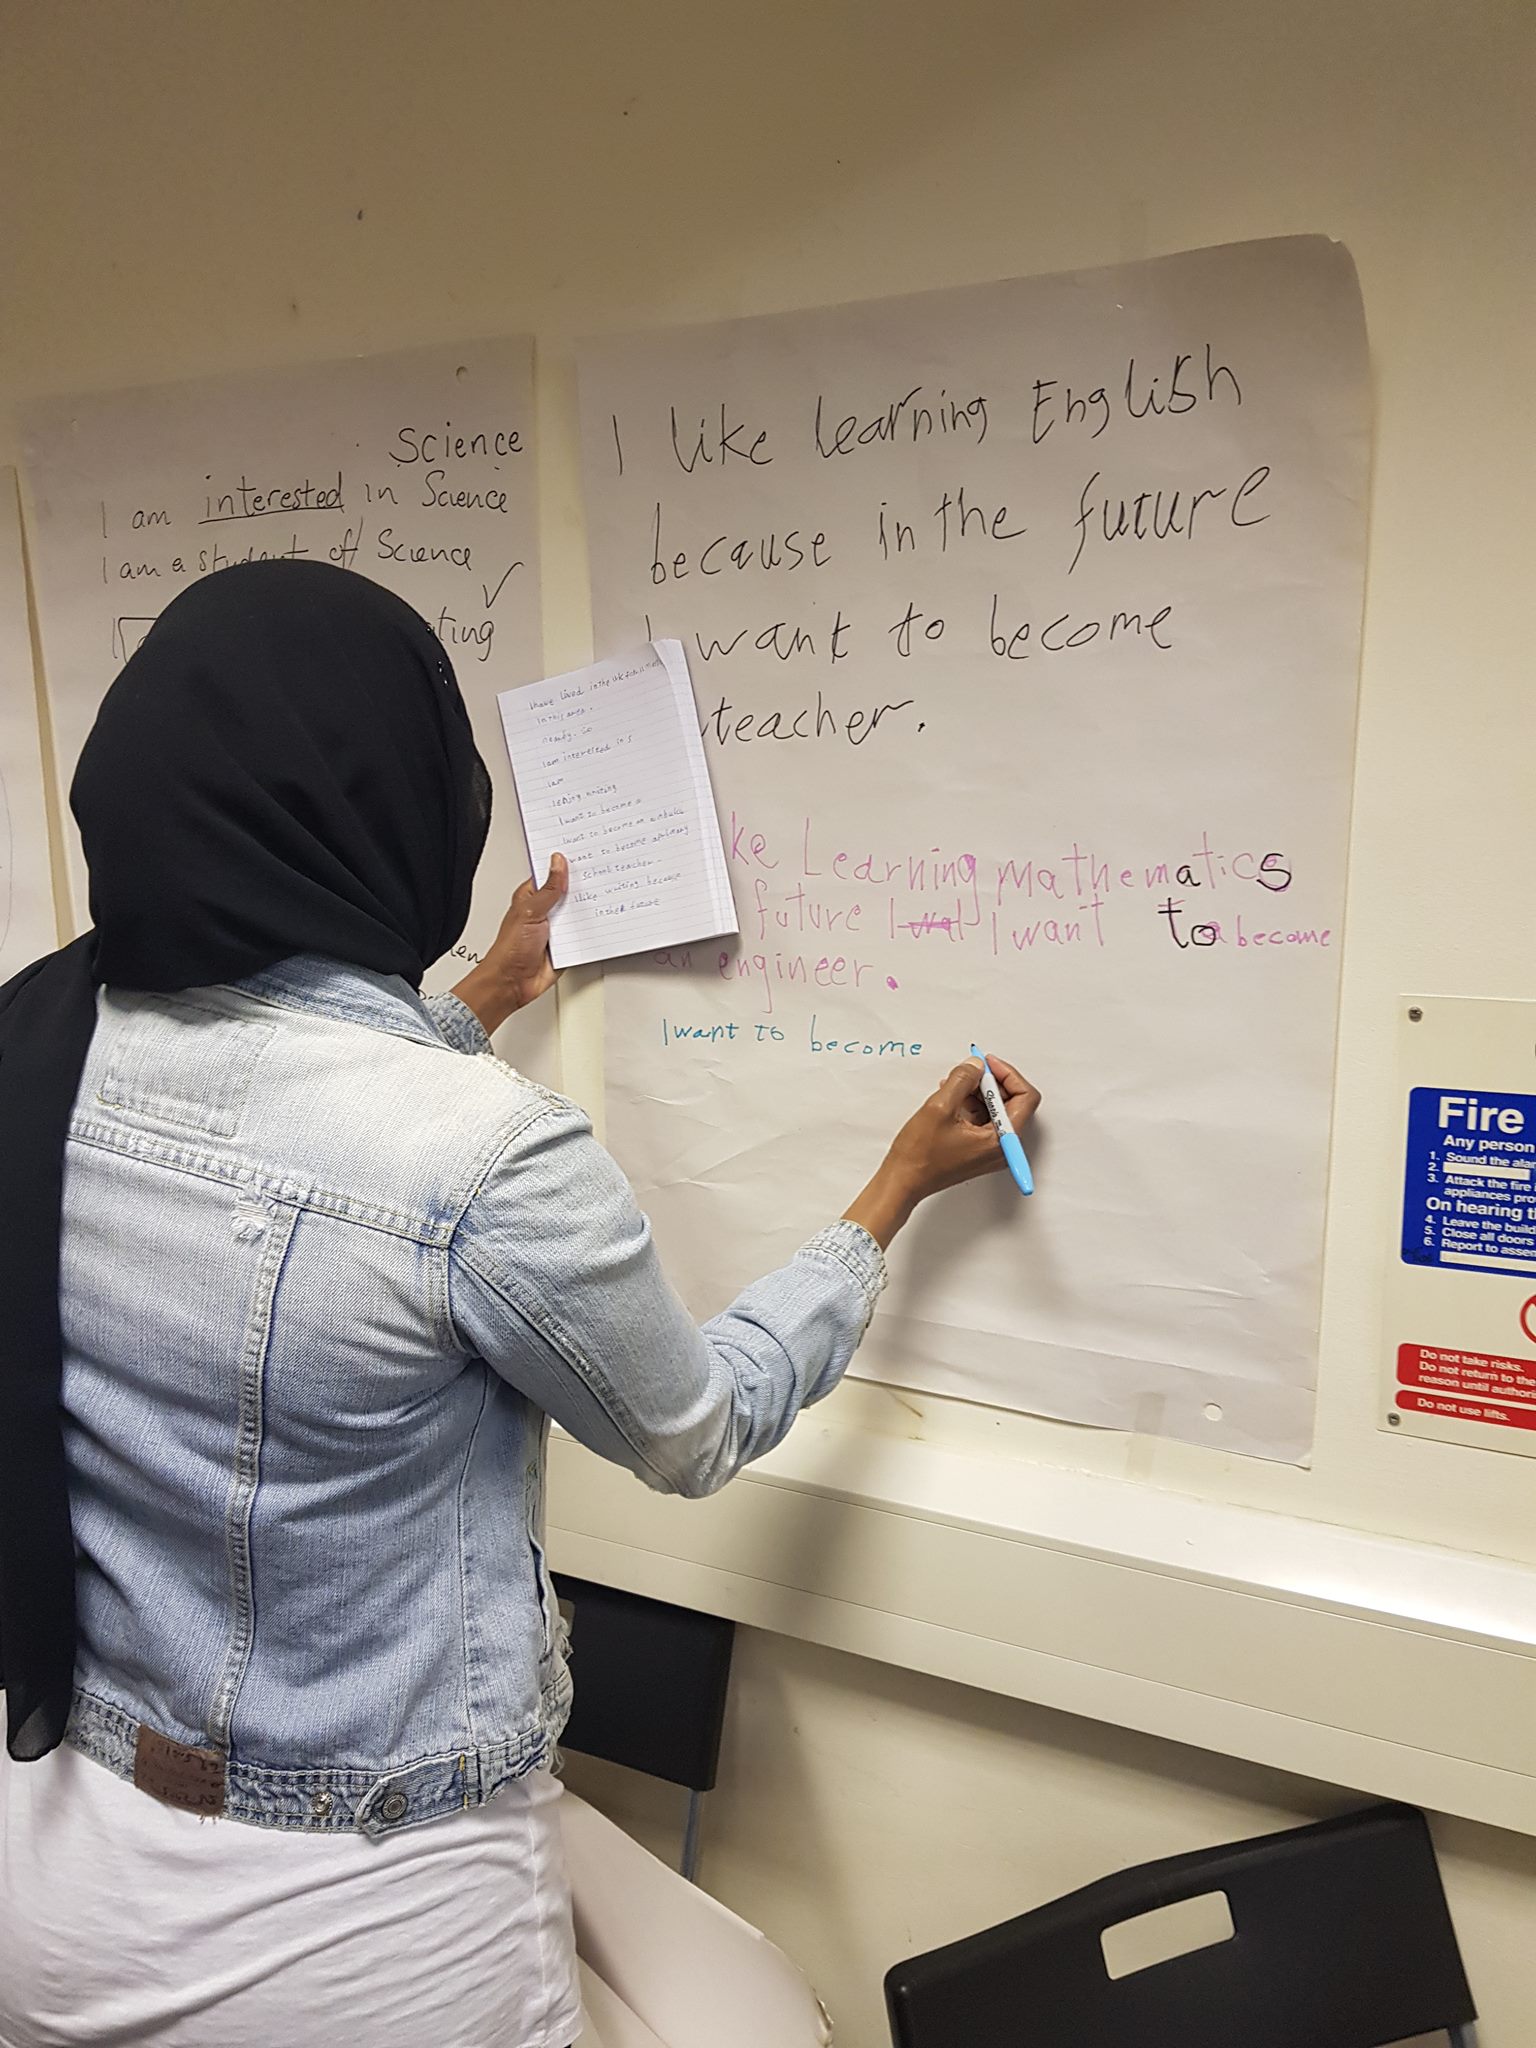 Science
I am interested in Science
I am a student of Science
I like learning English
because in the future
I want to become
teacher.
ke Learning mathematics
future I wat I want to become
an engineer.
I want to become
I have lived in the UK for
in this area.
nearly. So
I am interested in s
I am
I enjoy writing
I want to become a
I want to become an
I want to become a primary
school teacher.
I like writing because
in the future
Sharpie
Fire
Any person
1. Sound the alar
2.
3. Attack the fire
appliances pro
On hearing t
4. Leave the build
5. Close all doors
6. Report to assem
Do not take risks.
Do not return to the
reason until authoris
Do not use lifts.